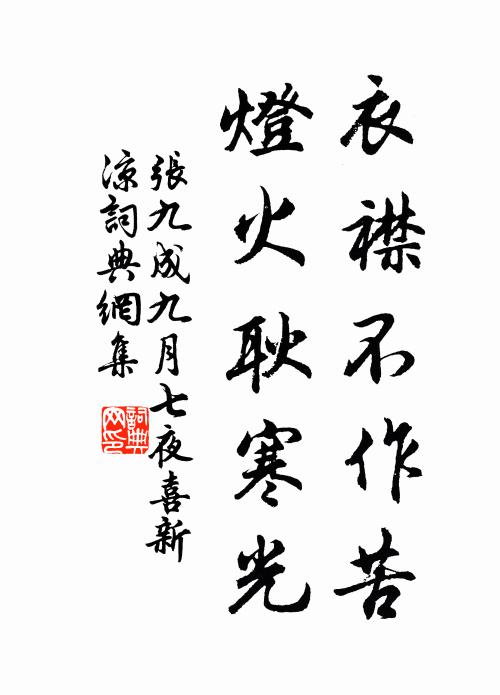 衣襟不作苦
燈火耿寒光
張九成九月七夜喜新
涼詞典網集
詞典
网印